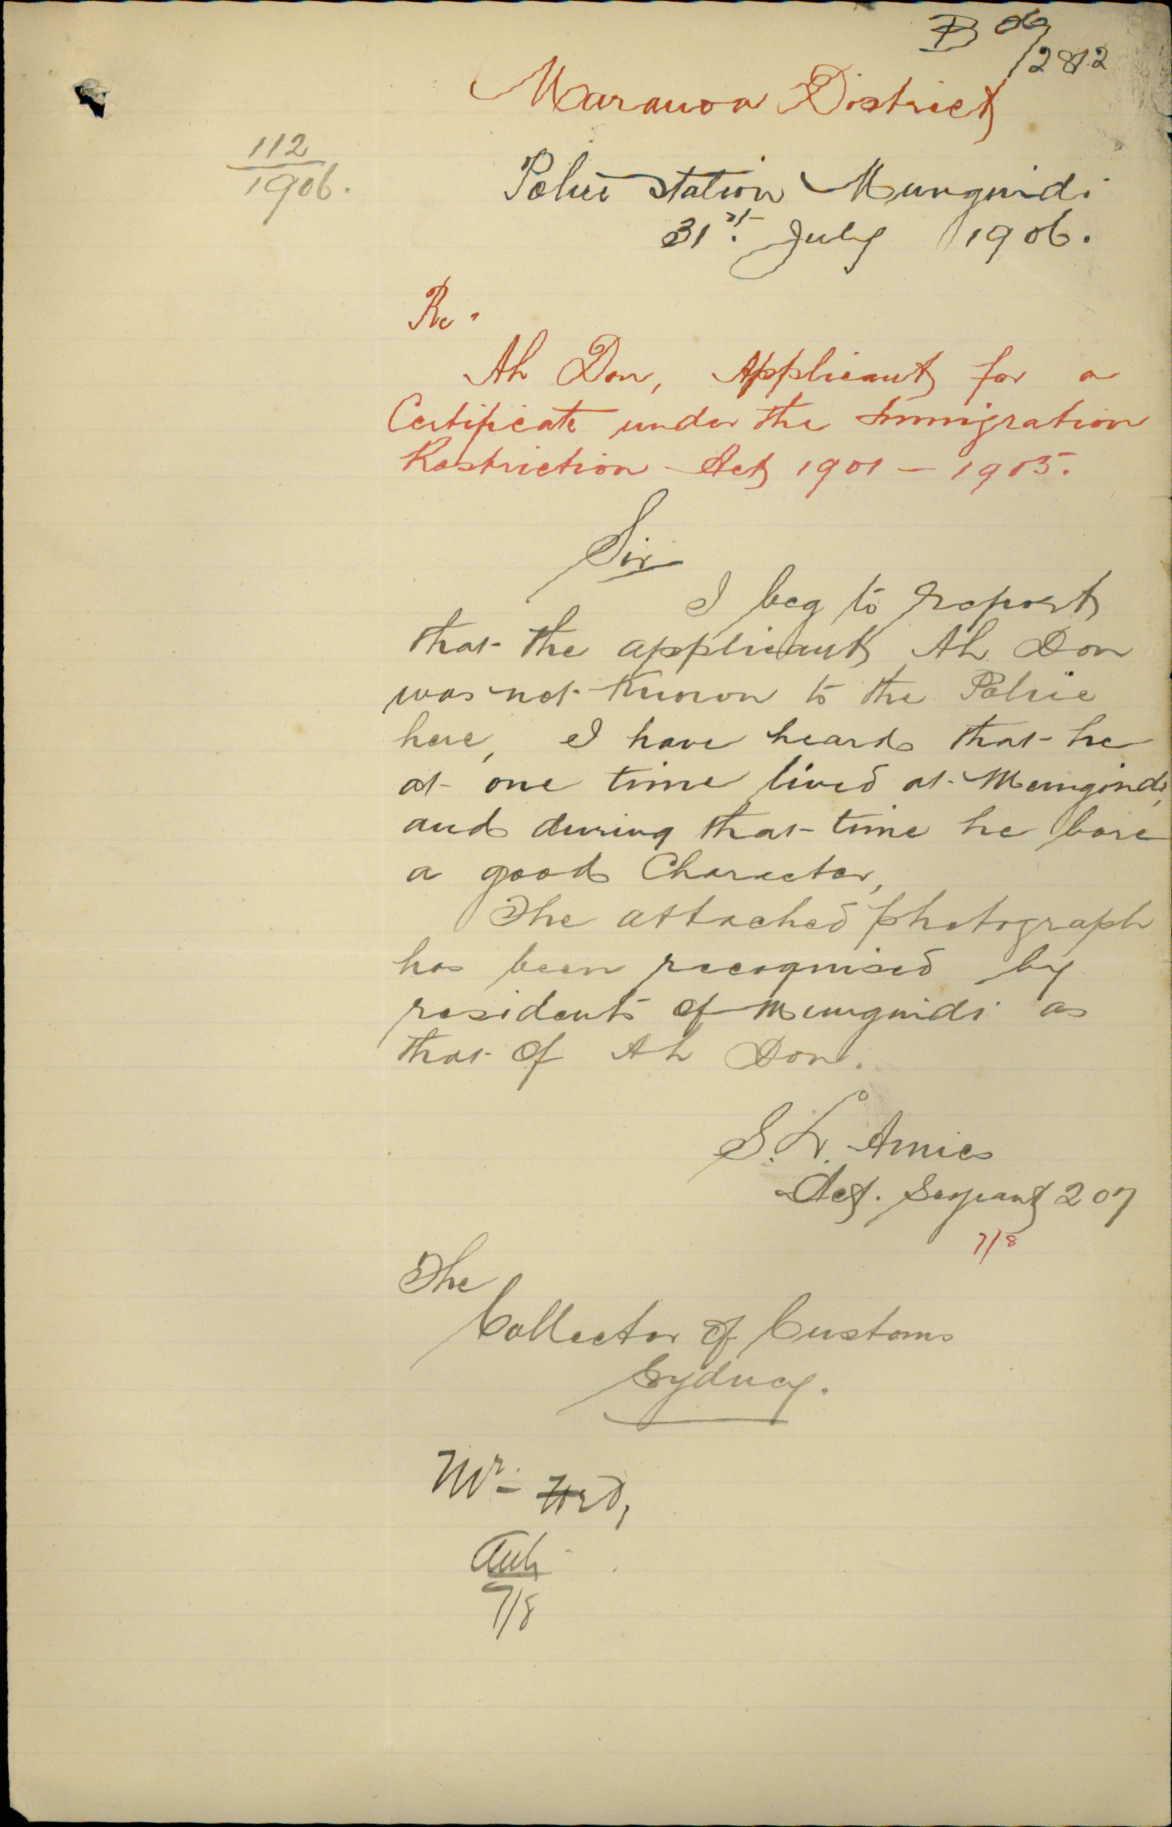 B 06/2812
Maranoa District
112
1906.
Police Station Mungindi
31st. July 1906.
Re.
Ah Don, Applicant for a
Certificate under the Immigration
Restriction Act 1901 – 1905.
Sir
I beg to report
that the applicant Ah Don
was not known to the Police
here, I have heard that he
at one time lived at Mungindi,
and during that time he bore
a good Character,
The attached photograph
has been recognised by
residents of Mungindi as
that of Ah Don.
Act. Sergeant 207
7/8
The
Collector of Customs
Sydney.
Mr.
7/8